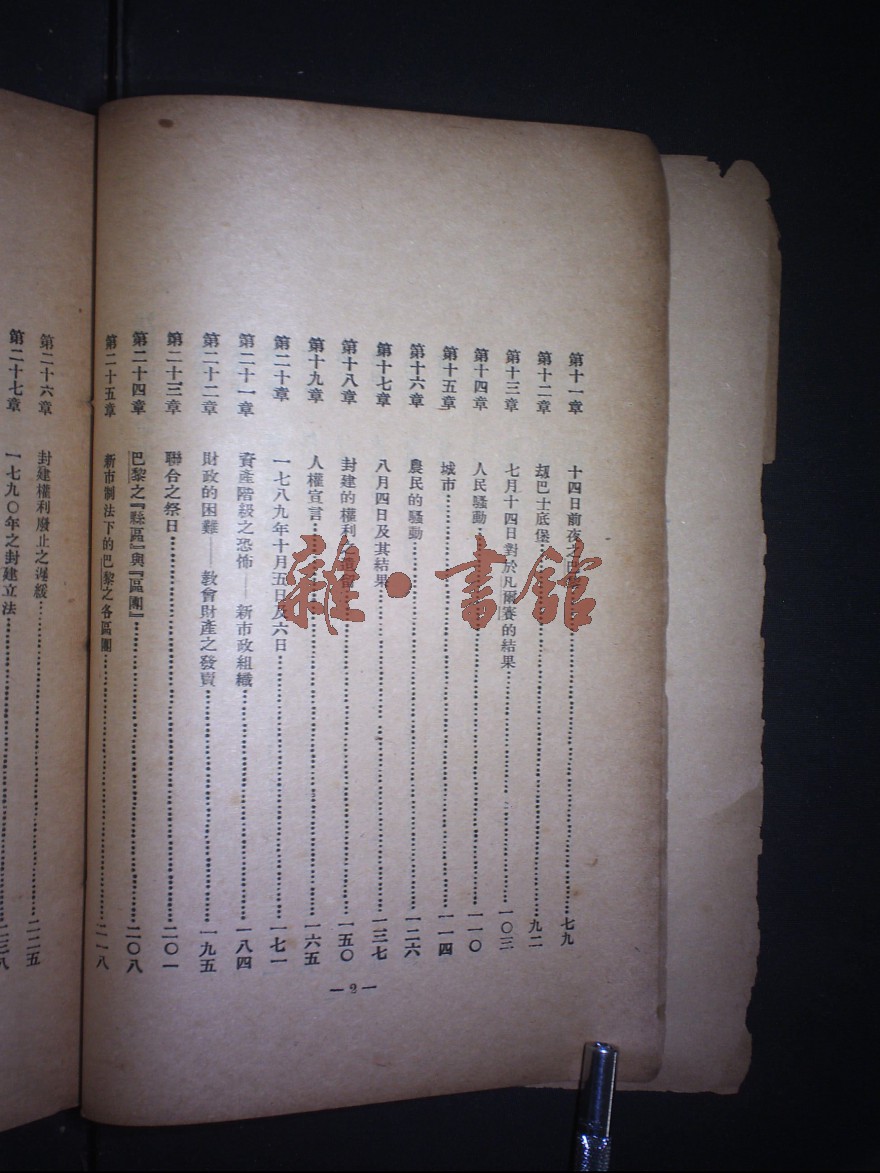 第十一章 十四日前夜之巴黎……七九
第十二章 刼巴士底堡……九二
第十三章 七月十四日對於凡爾賽的結果……一〇三
第十四章 人民騷動……一一〇
第十五章 城市……一一四
第十六章 農民的騷動……一二六
第十七章 八月四日及其結果……一三七
第十八章 封建的權利……一五〇
第十九章 人權宣言……一六五
第二十章 一七八九年十月五日及六日……一七一
第二十一章 資產階級之恐怖——新市政組織……一八四
第二十二章 財政的困難——教會財產之發賣……一九五
第二十三章 聯合之祭日……二〇一
第二十四章 巴黎之『縣區』與『區團』……二〇八
第二十五章 新市制法下的巴黎之各區團……二一八
—2—
第二十六章 封建權利廢止之遲緩……二二五
第二十七章 一七九〇年之封建立法……二三八
雜·書館